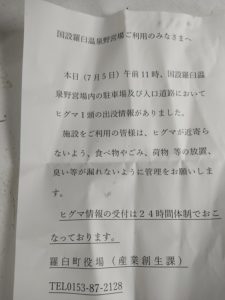 国設羅臼温泉野営場ご利用のみなさまへ
本日(7月5日)午前11時、国設羅臼温
泉野営場内の駐車場及び入口道路において
ヒグマ1頭の出没情報がありました。
施設をご利用の皆様は、ヒグマが近寄ら
ないよう、食べ物やごみ、荷物 等の放置、
臭い等が漏れないように管理をお願いしま
す。
ヒグマ情報の受付は24時間体制でおこ
なっております。
羅臼町役場(産業創生課)
TEL0153-87-2128